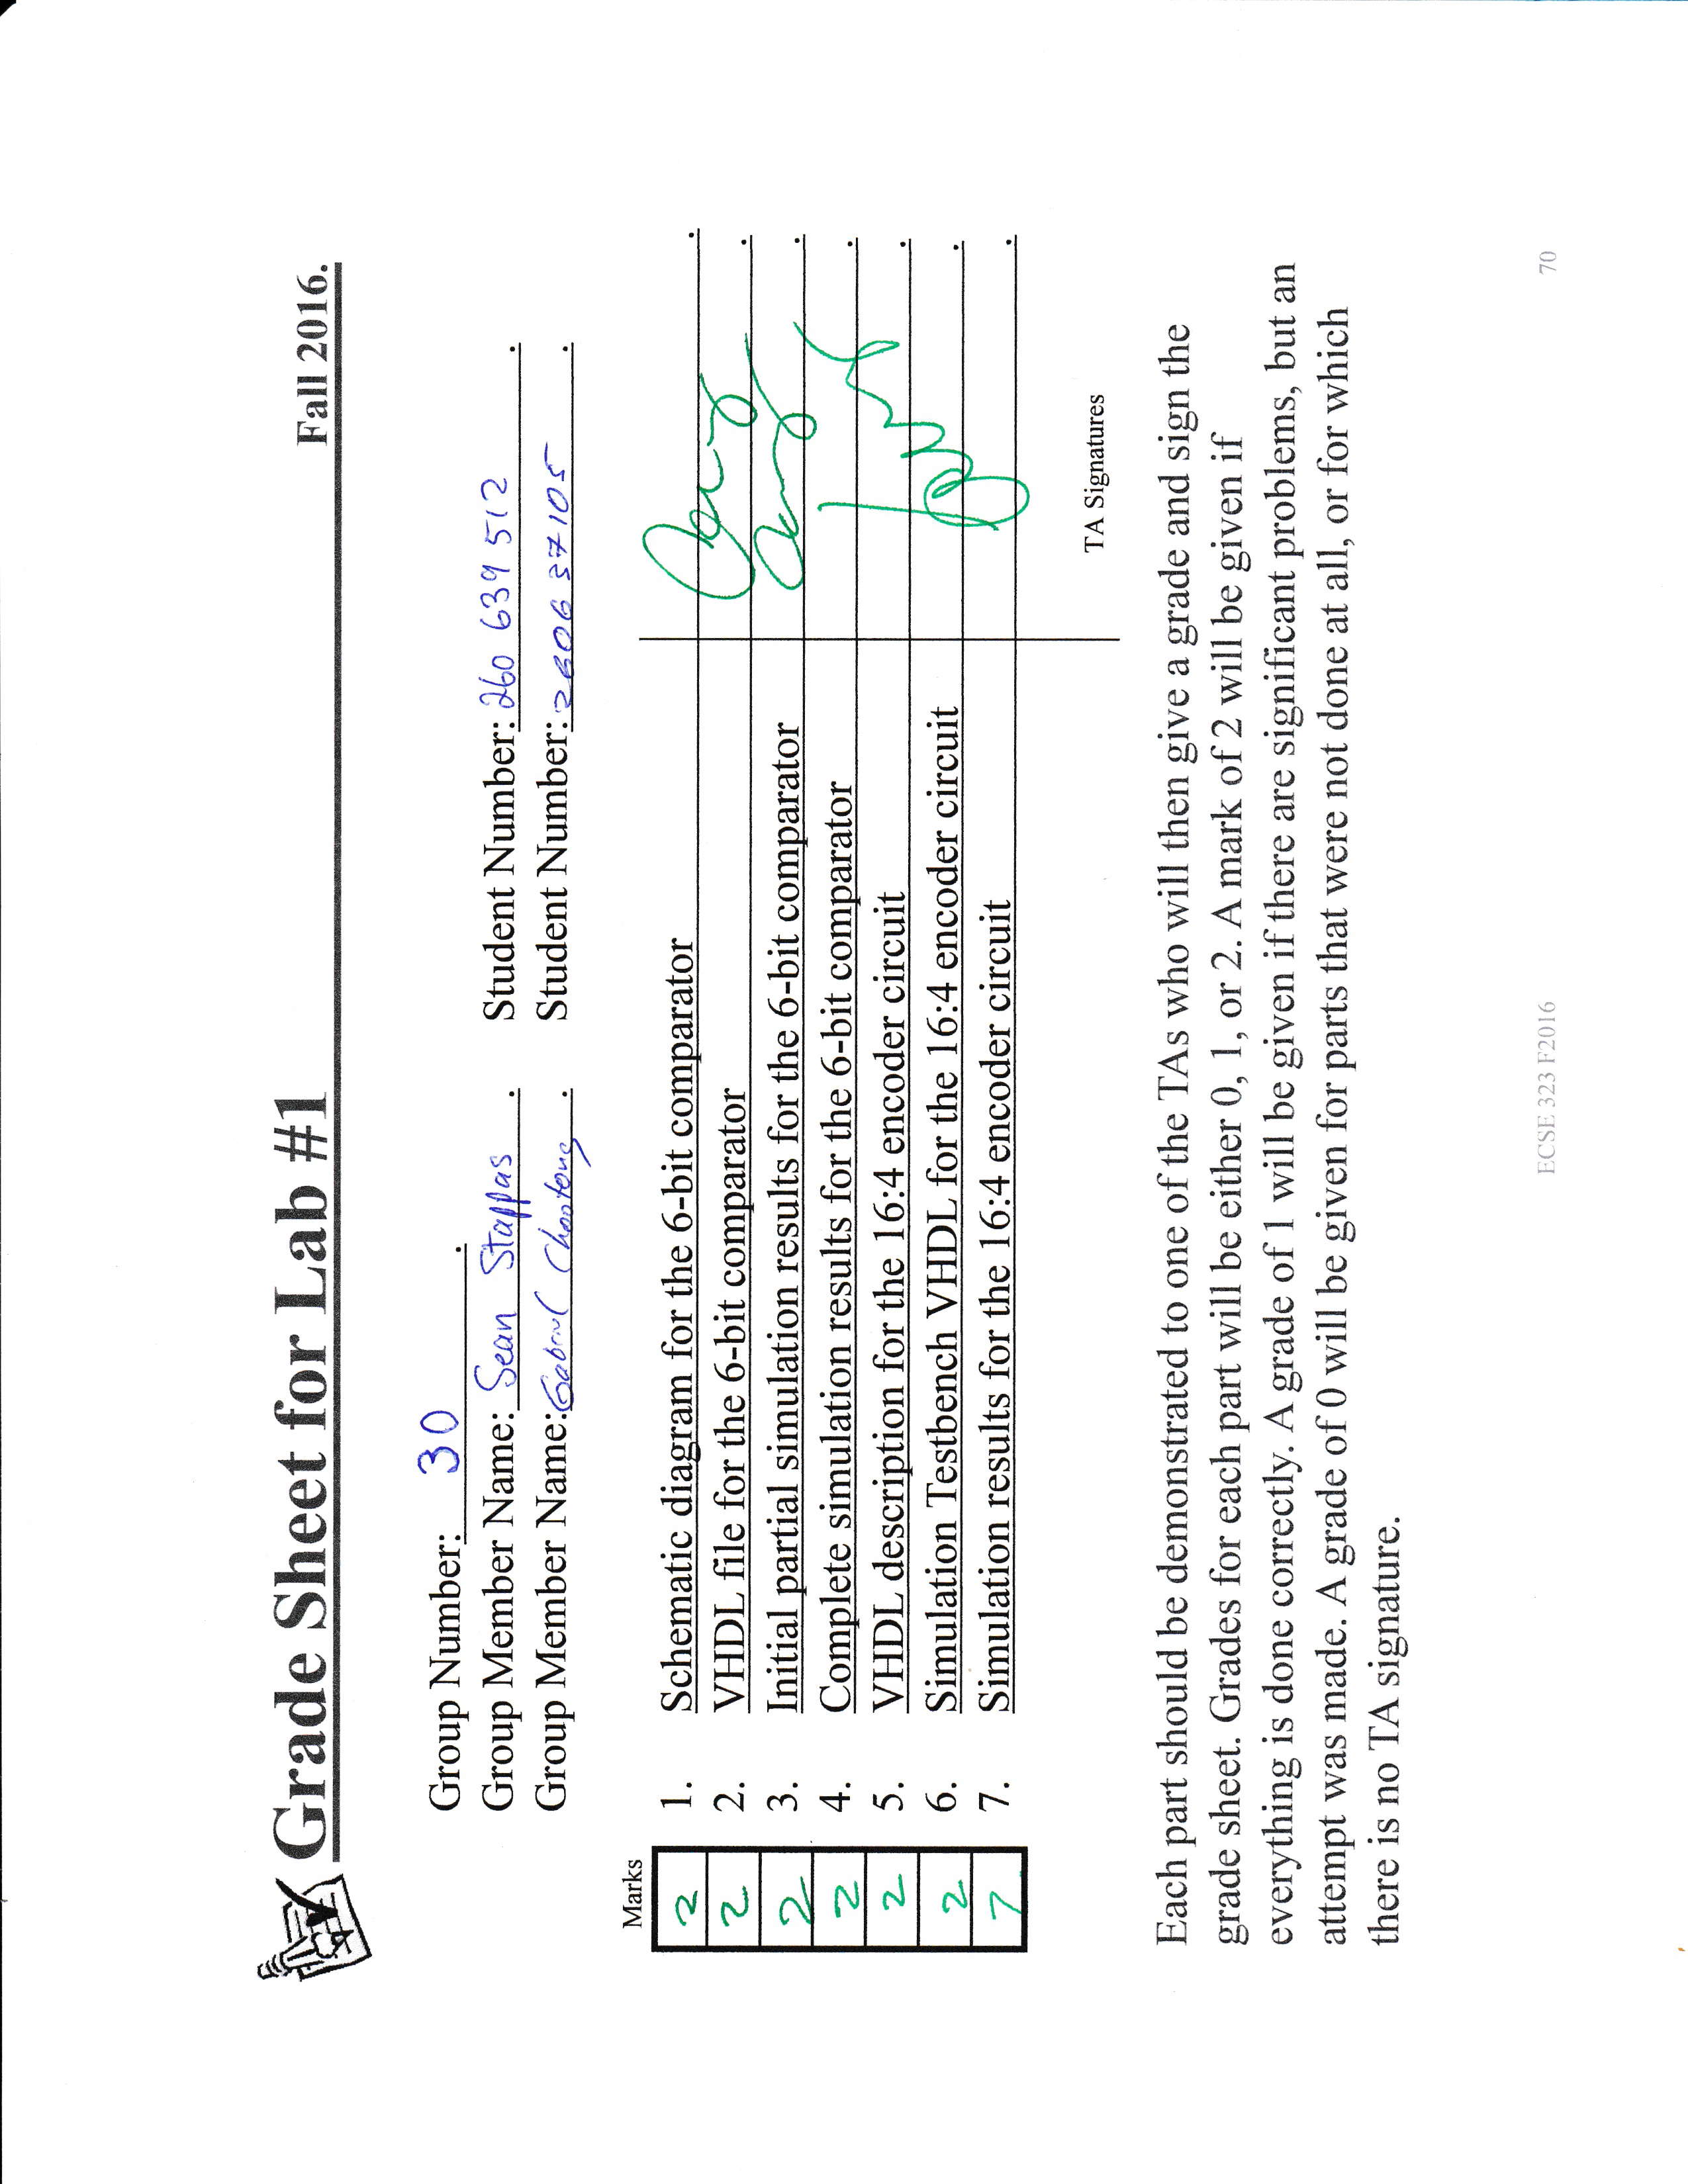 Grade Sheet for Lab #1 Fall 2016.
Group Number: 30 .
Group Member Name: Sean Stappas . Student Number: 260 639 512 .
Group Member Name: Student Number: 2606 37105 .
Marks
2 1. Schematic diagram for the 6-bit comparator .
2 2. VHDL file for the 6-bit comparator .
2 3. Initial partial simulation results for the 6-bit comparator .
2 4. Complete simulation results for the 6-bit comparator .
2 5. VHDL description for the 16:4 encoder circuit .
2 6. Simulation Testbench VHDL for the 16:4 encoder circuit .
7. Simulation results for the 16:4 encoder circuit .
TA Signatures
Each part should be demonstrated to one of the TAs who will then give a grade and sign the
grade sheet. Grades for each part will be either 0, 1, or 2. A mark of 2 will be given if
everything is done correctly. A grade of 1 will be given if there are significant problems, but an
attempt was made. A grade of 0 will be given for parts that were not done at all, or for which
there is no TA signature.
ECSE 323 F2016 70